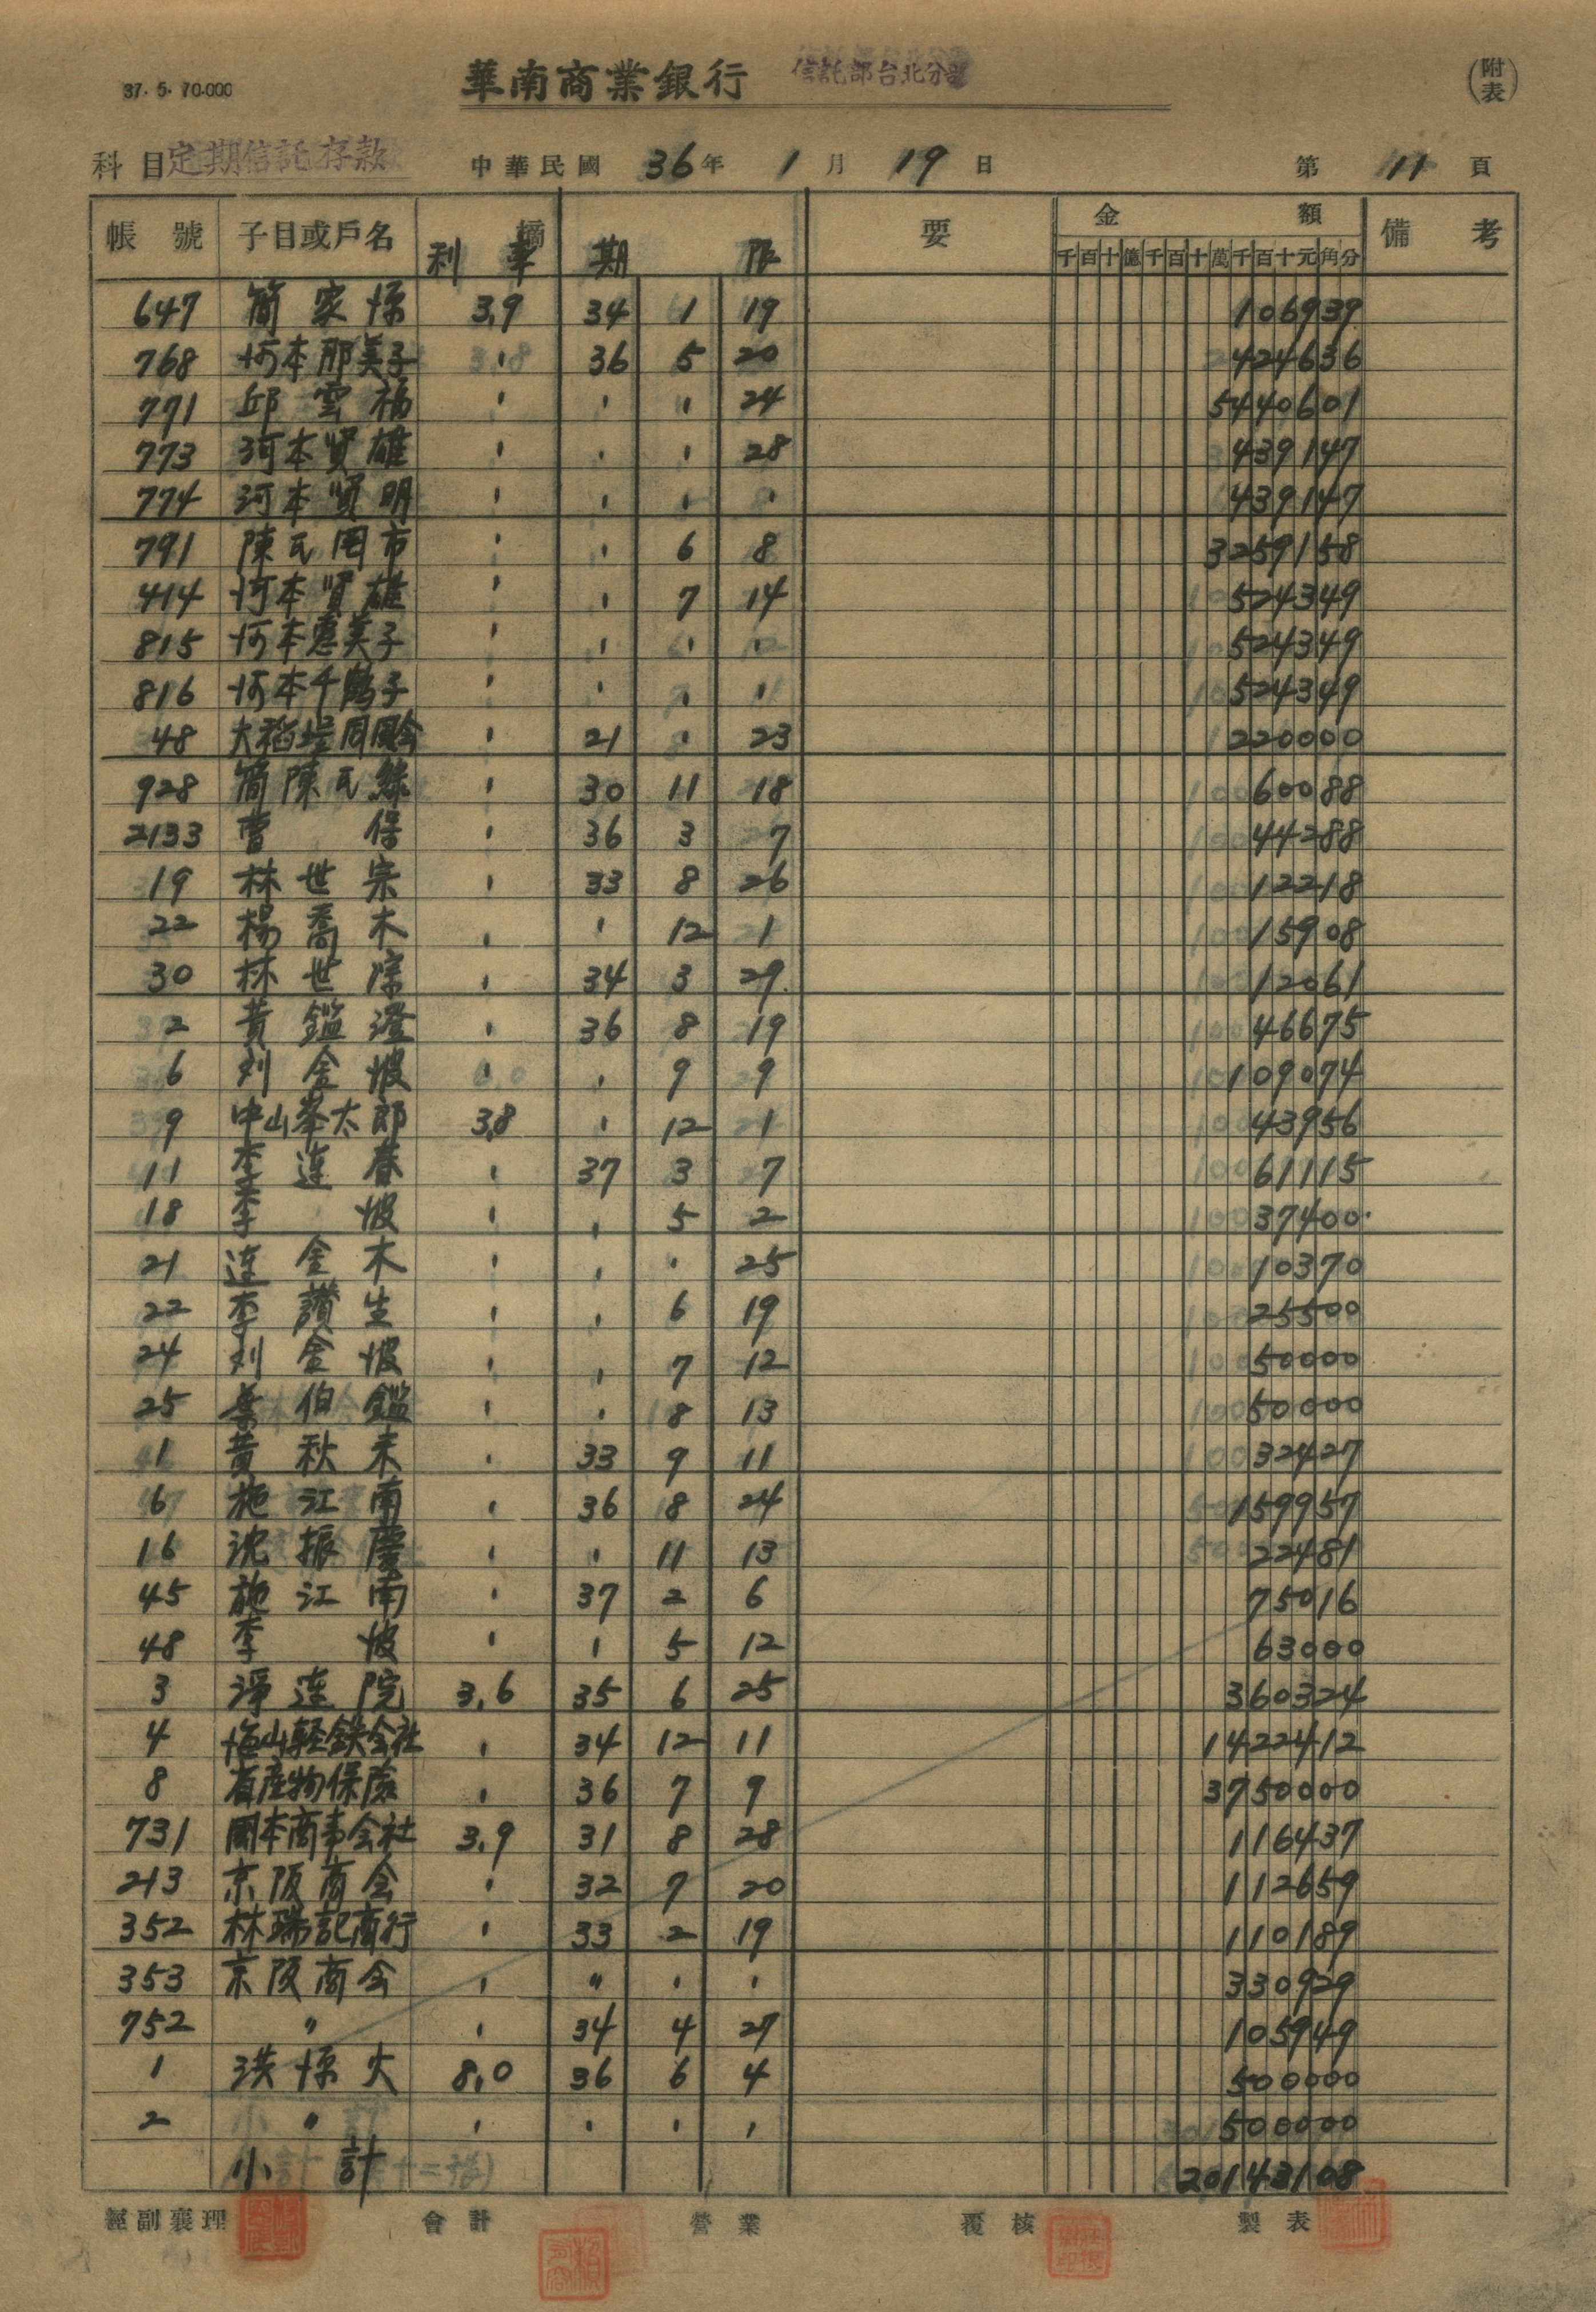 37. 5. 70.000 華南商業銀行 信託部台北分部 (附表)
科目 定期信託存款 中華民國 36年 1月 19日 第 11 頁
帳號 子目或戶名 摘 要 金額 備考
利率 期限 千百十億千百十萬千百十元角分
647 簡家 3,9 34 1 19 106939
768 河本那美子 ' 36 5 20 424636
771 邱雲福 ' ' ' 24 5440601
773 河本賢雄 ' ' ' 28 439147
774 河本賢明 ' ' ' ' 439147
791 陳氏罔市 ' ' 6 8 3259158
414 河本賢雄 ' ' 7 14 524349
815 河本惠美子 ' ' ' ' 524349
816 河本千鶴子 ' ' ' ' 524349
48 大稻埕同風会 ' 21 ' 23 220000
928 簡陳氏綠 ' 30 11 18 60088
2133 曹保 ' 36 3 7 44288
19 林世宗 ' 33 8 26 12218
22 楊喬木 ' ' 12 1 15908
30 林世 ' 34 3 29 12061
2 黃鑑澄 ' 36 8 19 46675
6 刘金 ' ' 9 9 109074
9 中山峯太郎 3,8 ' 12 1 43956
11 李連春 ' 37 3 7 61115
18 李 ' ' 5 2 37400
21 連金木 ' ' ' 25 10370
22 李讃生 ' ' 6 19 25500
24 刘金 ' ' 7 12 50000
25 葉伯鑑 ' ' 8 13 50000
1 黃秋 ' 33 9 11 32427
6 施江南 ' 36 8 24 159957
16 沈振慶 ' ' 11 13 22481
45 施江南 ' 37 2 6 75016
48 李 ' ' 5 12 63000
3 淨蓮院 3,6 35 6 25 360324
4 海山輕鉄会社 ' 34 12 11 1422412
8 省產物保險 ' 36 7 9 3750000
731 岡本商事会社 3,9 31 8 28 116437
213 京阪商会 ' 32 7 20 112659
352 林瑞記商行 ' 33 2 19 110189
353 京阪商会 ' 〃 ' ' 330929
752 〃 ' 34 4 27 105949
1 洪火 8,0 36 6 4 500000
2 〃 ' ' ' ' 500000
小計 20143108
經副襄理 會計 營業 覆核 製表